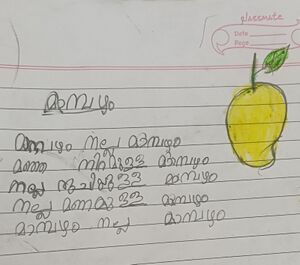 classmate
Date
Page
മാമ്പഴം
മാമ്പഴം നല്ല മാമ്പഴം
മഞ്ഞ നിറമുള്ള മാമ്പഴം
നല്ല രുചിയുള്ള മാമ്പഴം
നല്ല മണമുള്ള മാമ്പഴം
മാമ്പഴം നല്ല മാമ്പഴം